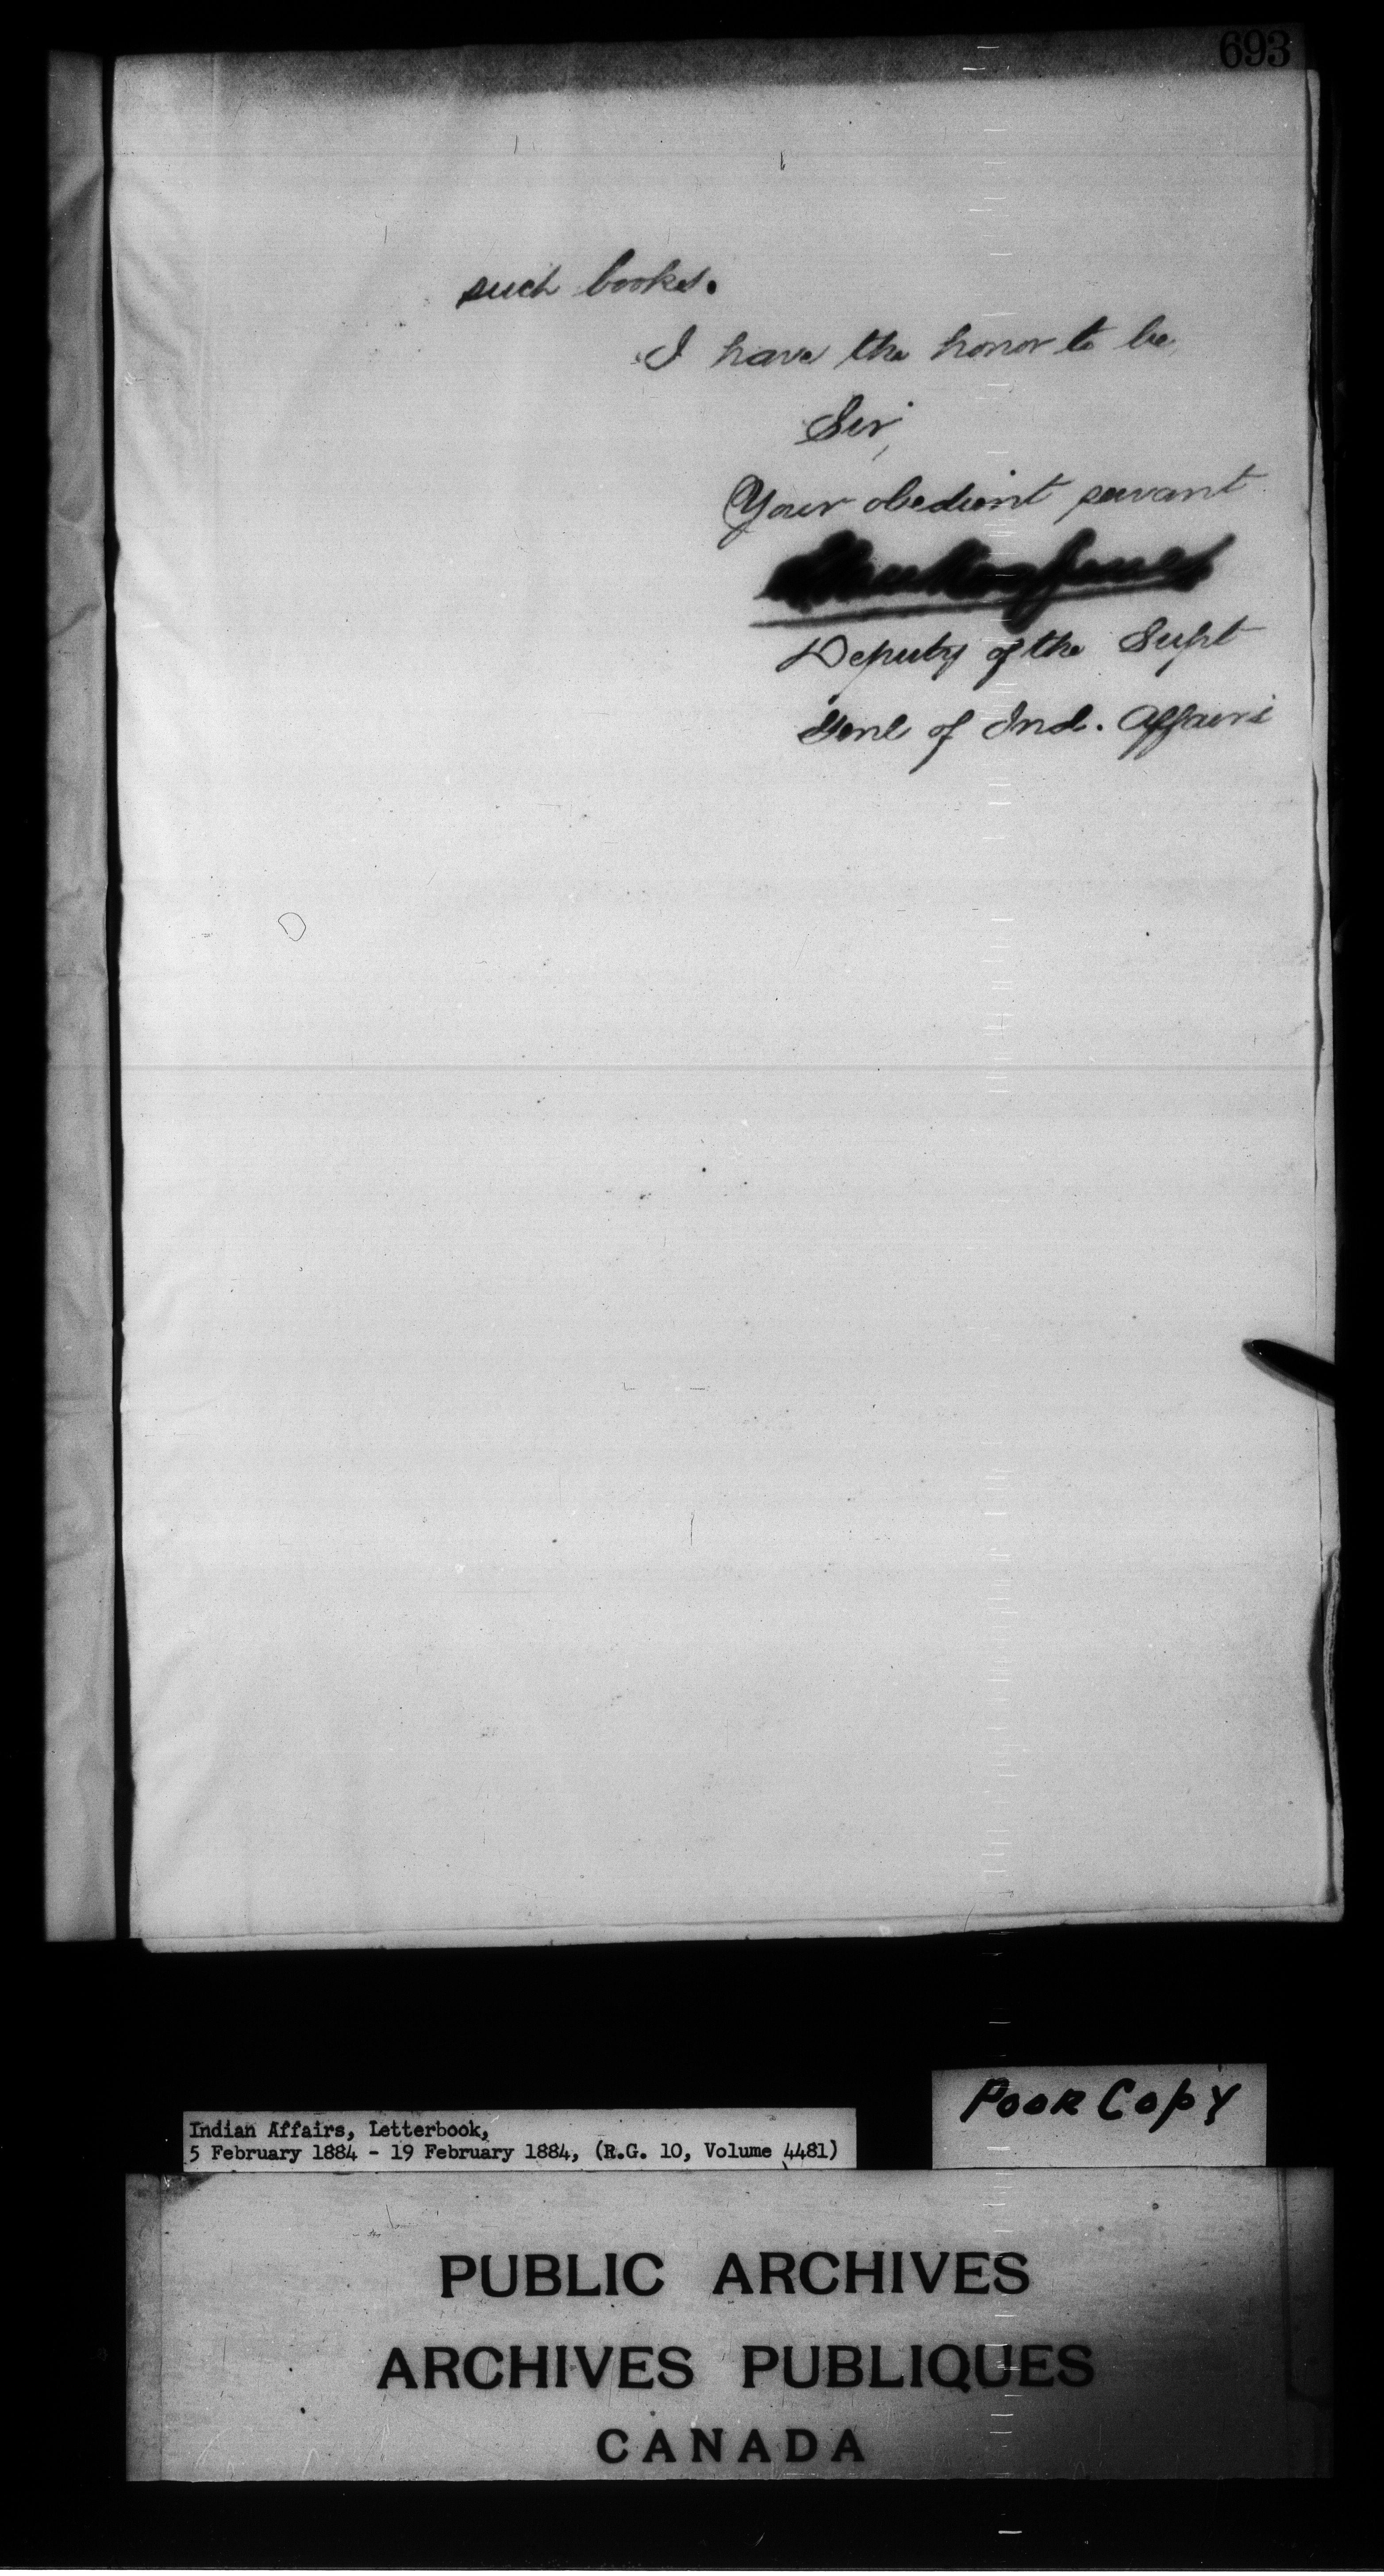 693
such books.
I have the honor to be
Sir,
Your obedient servant
Deputy of the Supt
Genl of Ind. Affairs
Poor Copy
Indian Affairs, Letterbook,
5 February 1884 - 19 February 1884, (R.G. 10, Volume 4481)
PUBLIC ARCHIVES
ARCHIVES PUBLIQUES
CANADA